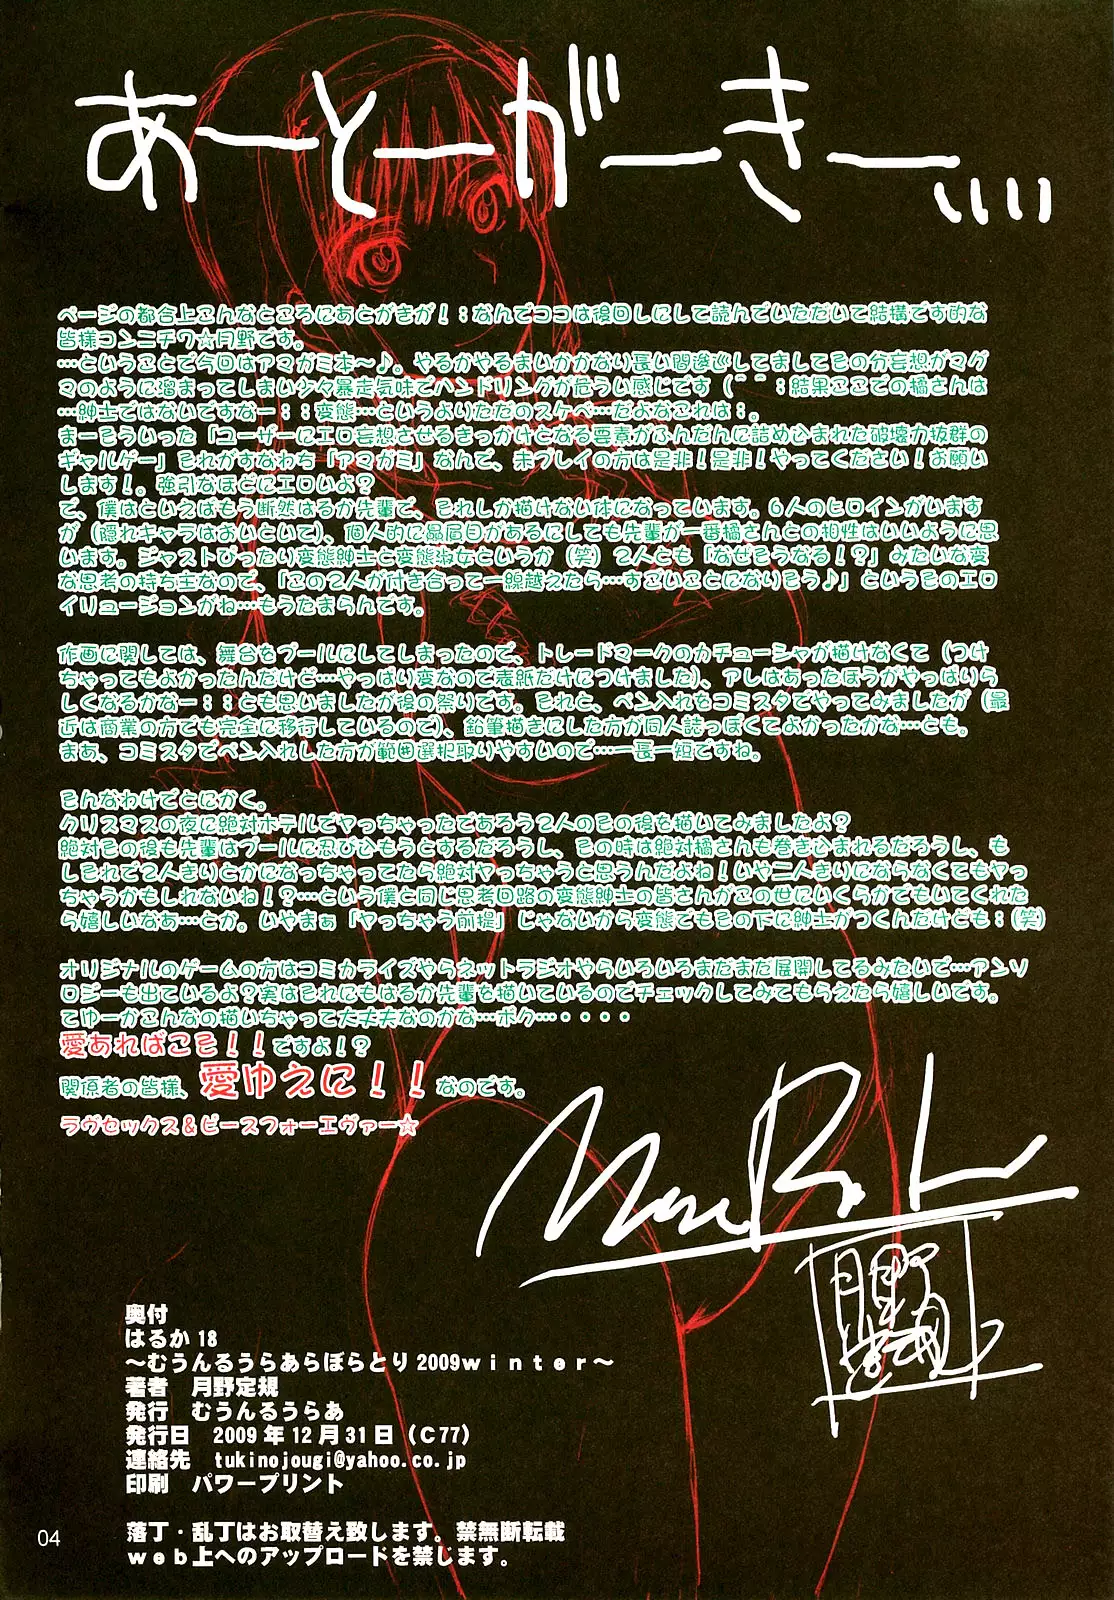 あーとーがーきー、、、、
ページの都合上こんなところにあとがきが！；なんでココは後回しにして読んでいただいて結構です的な
皆様コンニチワ☆月野です。
…ということで今回はアマガミ本～♪。やるかやるまいかかなり長い間逡巡してましてその分妄想がマグ
マのように溜まってしまい少々暴走気味でハンドリングが危うい感じです（＾＾；結果ここでの橘さんは
…紳士ではないですなー；；変態…というよりただのスケベ…だよなこれは；。
まーそういった「ユーザーにエロ妄想させるきっかけとなる要素がふんだんに詰め込まれた破壊力抜群の
ギャルゲー」それがすなわち「アマガミ」なんで、未プレイの方は是非！是非！やってください！お願い
します！。強引なほどにエロいよ？
で、僕はといえばもう断然はるか先輩で、それしか描けない体になっています。6人のヒロインがいます
が（隠れキャラはおいといて）、個人的に贔屓目があるにしても先輩が一番橘さんとの相性はいいように思
います。ジャストぴったり変態紳士と変態淑女というか（笑）2人とも「なぜそうなる！？」みたいな変
な思考の持ち主なので、「この2人が付き合って一線越えたら…すごいことになりそう♪」というそのエロ
イリュージョンがね…もうたまらんです。
作画に関しては、舞台をプールにしてしまったので、トレードマークのカチューシャが描けなくて（つけ
ちゃってもよかったんだけど…やっぱり変なので表紙だけにつけました）、アレはあったほうがやっぱりら
しくなるかなー；；とも思いましたが後の祭りです。それと、ペン入れをコミスタでやってみましたが（最
近は商業の方でも完全に移行しているので）、鉛筆描きにした方が同人誌っぽくてよかったかな…とも。
まあ、コミスタでペン入れした方が範囲選択取りやすいので…一長一短ですね。
そんなわけでとにかく。
クリスマスの夜に絶対ホテルでヤっちゃったであろう2人のその後を描いてみましたよ？
絶対その後も先輩はプールに忍びひもうとするだろうし、その時は絶対橘さんも巻きひまれるだろうし、も
しそれで2人きりとかになっちゃってたら絶対ヤっちゃうと思うんだよね！いや二人きりにならなくてもヤっ
ちゃうかもしれないね！？…という僕と同じ思考回路の変態紳士の皆さんがこの世にいくらかでもいてくれた
ら嬉しいなあ…とか。いやまぁ「ヤっちゃう前提」じゃないから変態でもその下に紳士がつくんだけども；（笑）
オリジナルのゲームの方はコミカライズやらネットラジオやらいろいろまだまだ展開してるみたいで…アンソ
ロジーも出ているよ？実はそれにもはるか先輩を描いているのでチェックしてみてもらえたら嬉しいです。
てゆーかこんなの描いちゃって大丈夫なのかな…ボク…・・・・
愛あればこそ！！ですよ！？
関係者の皆様、愛ゆえに！！なのです。
ラヴセックス＆ピースフォーエヴァー☆
奥付
はるか18
～むうんるうらあらぼらとり2009winter～
著者　月野定規
発行　むうんるうらあ
発行日　2009年12月31日（C77）
連絡先　tukinojougi@yahoo.co.jp
印刷　パワープリント
04
落丁・乱丁はお取替え致します。禁無断転載
web上へのアップロードを禁じます。